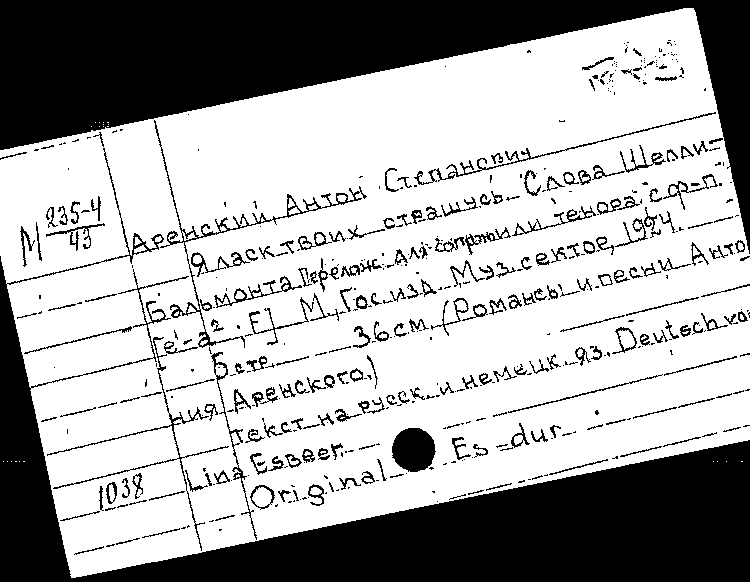 М 235-4
43
Аренский, Антон Степанович
Я ласк твоих страшусь. Слова Шелли-
Бальмонта Перелож. для сопрано или тенора, с ф-п.
[e'-a² ; F] М., Гос. изд. Муз. сектор, 1924.
5 стр. 36 см. (Романсы и песни Анто
ния Аренского.)
текст на русск. и немецк. яз. Deutsch von
1038 Lina Esbeer
Original Es-dur